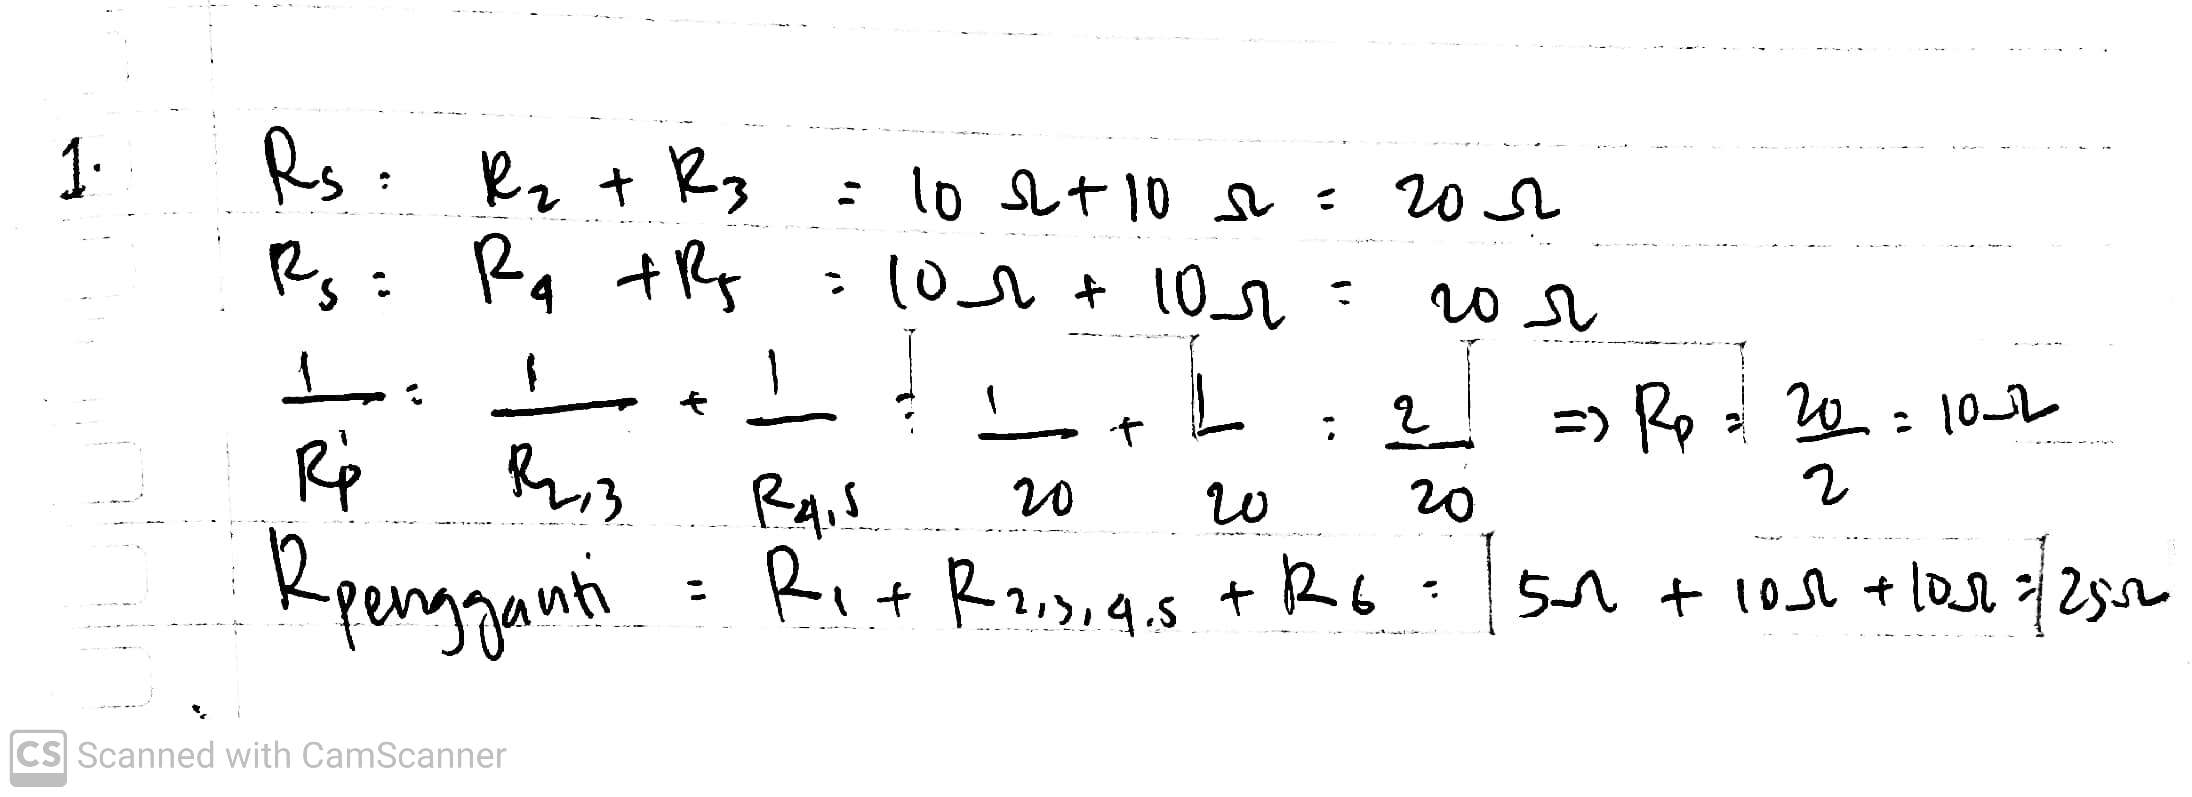 1. Rs = R2 + R3 = 10 Ω + 10 Ω = 20 Ω
Rs = R4 + R5 = 10 Ω + 10 Ω = 20 Ω
1/Rp = 1/R2,3 + 1/R4,5 = 1/20 + 1/20 = 2/20 => Rp = 20/2 = 10 Ω
Rpengganti = R1 + R2,3,4,5 + R6 = 5Ω + 10Ω + 10Ω = 25Ω
CS Scanned with CamScanner